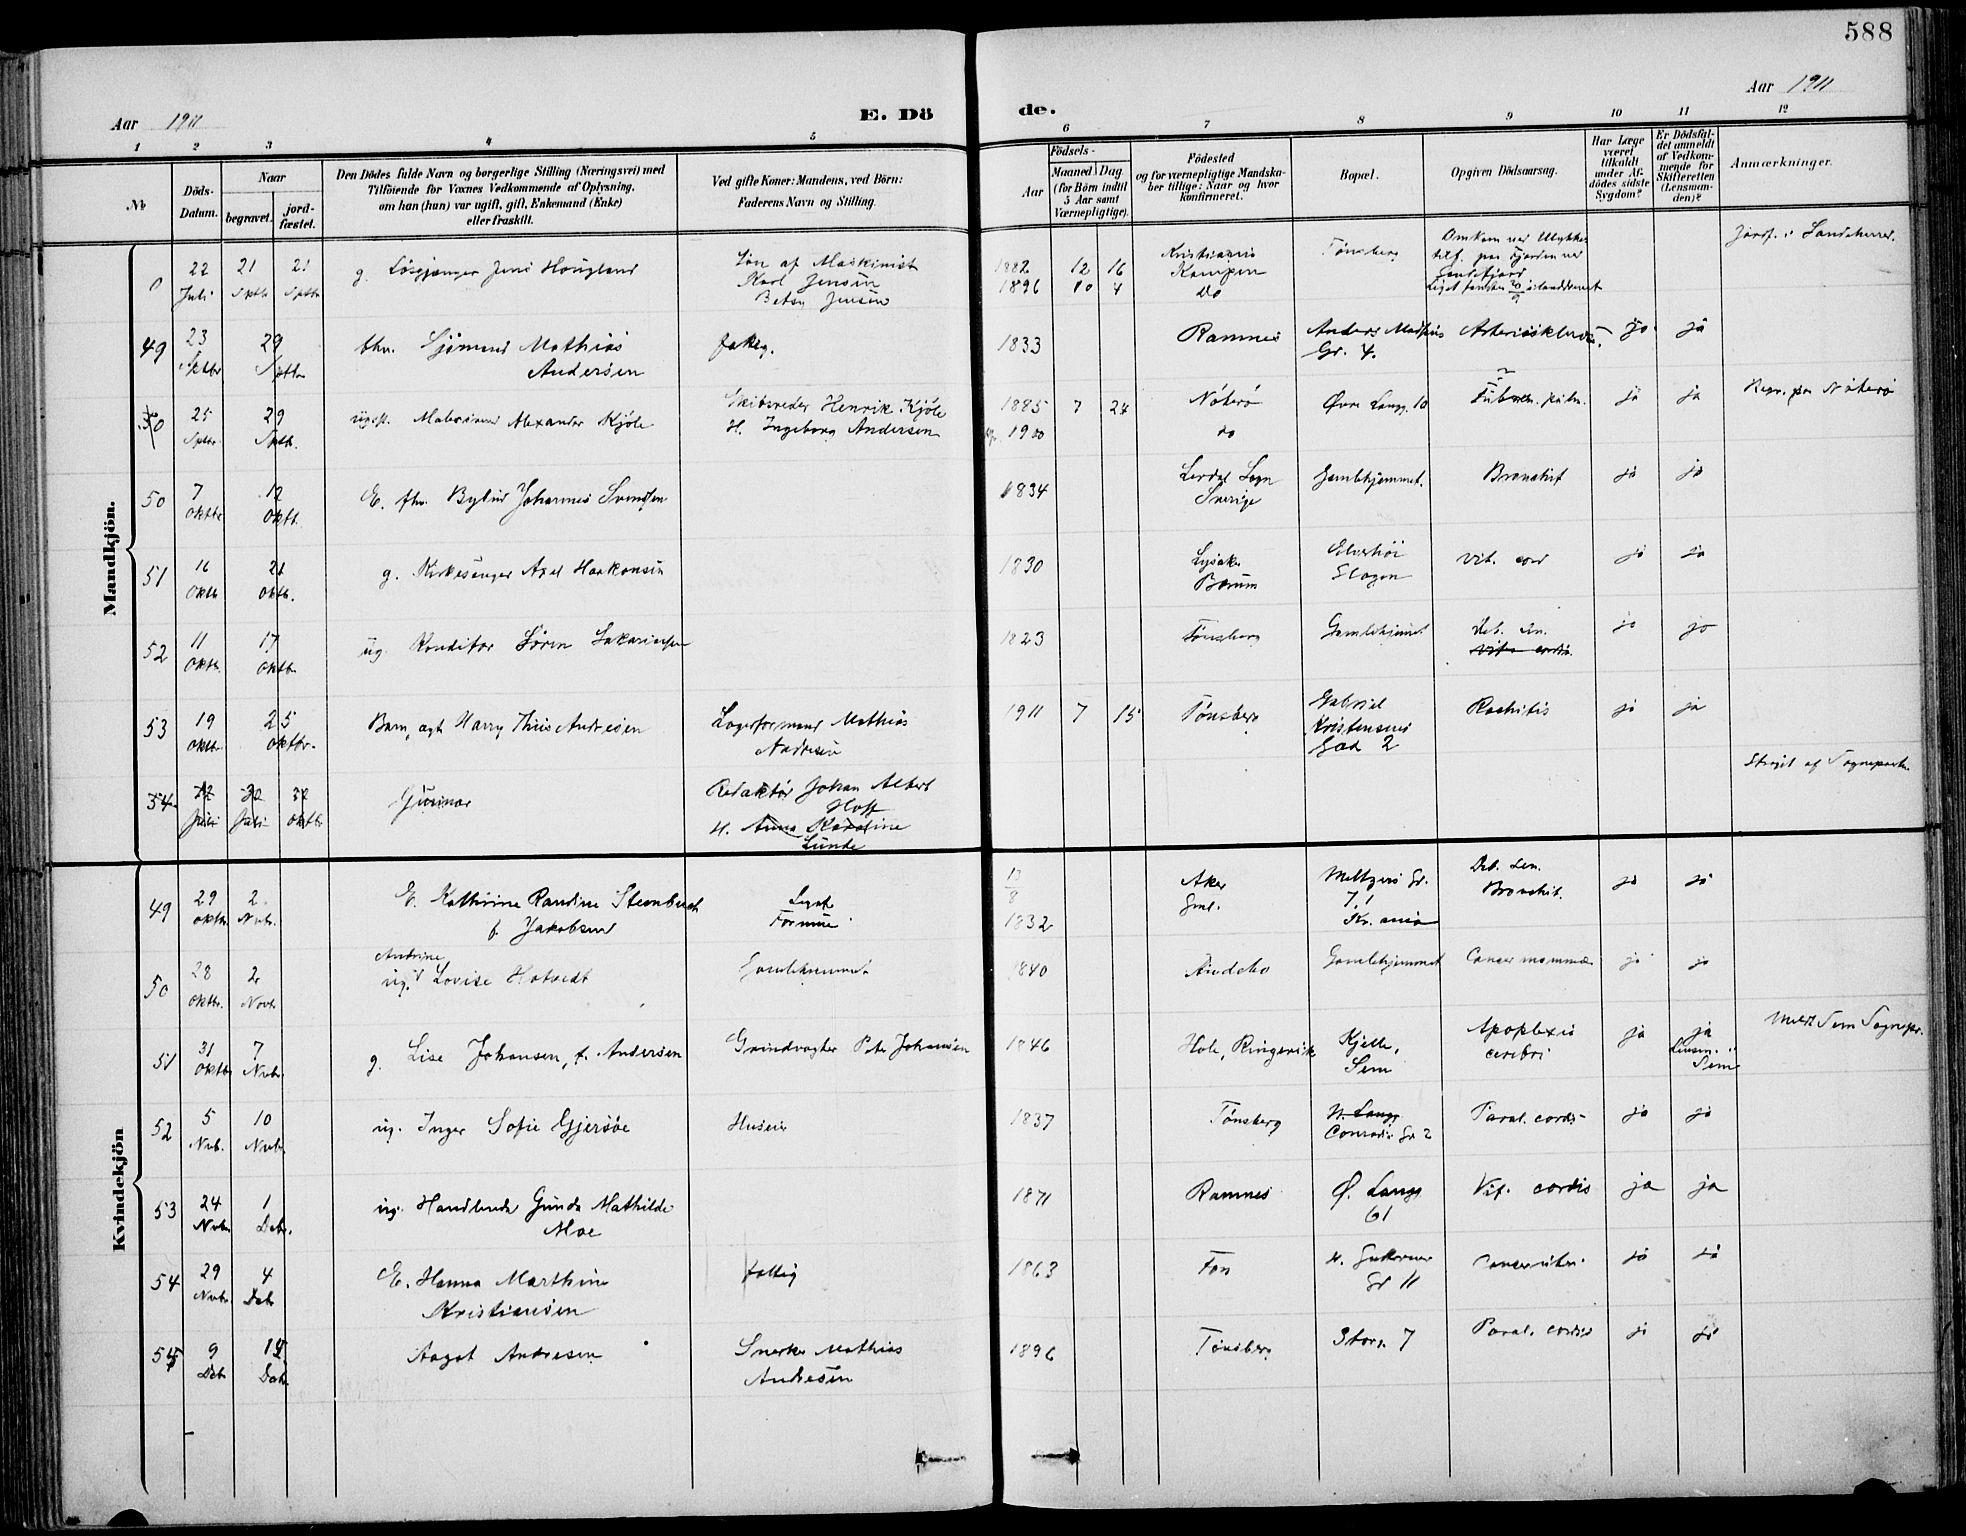 588
Aar 1911
E. Dö
de.
Aar 1911
1 2 3 4 5 6 7 8 9 10 11 12
№
Döds-
Datum.
Naar
begravet.
jord-
fæstet.
Den Dödes fulde Navn og borgerlige Stilling (Næringsvei) med
Tilföiende for Voxnes Vedkommende af Oplysning,
om han (hun) var ugift, gift, Enkemand (Enke)
eller fraskilt.
Ved gifte Koner: Mandens, ved Börn:
Faderens Navn og Stilling.
Födsels-
Aar
Maaned Dag
(for Börn indtil
5 Aar samt
Værnepligtige).
Födested
og for værnepligtige Mandska-
ber tillige: Naar og hvor
konfirmeret.
Bopæl.
Opgiven Dödsaarsag.
Har Læge
været
tilkaldt
under Af-
dödes sidste
Sygdom?
Er Dödsfal-
det anmeldt
af Vedkom-
mende for
Skifteretten
(Lensman-
den)?
Anmærkninger.
Mandkjön.
0 22 Juli 21 Sptbr 21 Sptbr
g. Løsgjænger Jens Hougland
Søn af Maskinist
Karl Jensen
Betsy Jensen
1882 12 16
1896 10 4
Kristiania
Kampen
do
Tønsberg
Omkom ved Ulykkes
tilf. paa Fjorden ved
Sandefjord
Jordf. i Sandeherred.
49 23 Sptbr 29 Sptbr
fhv. Sjømand Mathias
Andersen
fattig.
1833
Ramnes
Anders Madsens
Gr. 4.
Arteriosklerose.
ja ja
50 25 Sptbr 29 Sptb.
ugift. Malersvend Alexander Kjøle
Skibsreder Henrik Kjøle
H. Ingeborg Andersen
1885 7 24
1900
Nøterø
do
Øvre Langg. 10
Tuberk. pulm.
ja ja
Begr. paa Nøterø
50 7 Oktbr 12 Oktb.
E. fhv. Bybud Johannes Svendsen
1834
Lerdal Sogn
Sverige
Gamlehjemmet.
Bronchit
ja ja
51 16 Oktb 21 Oktb.
g. Kirkesanger Axel Haakonsen
1830
Lysaker
Bærum
Elverhøi
Slagen
Vit. cord
ja ja
52 11 Oktb. 17 Oktb
ug. Konditor Søren Zakariassen
1823
Tønsberg
Gamlehjemmet
Deb. sen.
Vitu cordis.
ja ja
53 19 Oktb. 25 Oktbr.
Barn, ægt Harry Thius Andresen
Lagerformand Mathias
Andresen
1911 7 15
Tønsberg
Gabriel
Kristensens
Gad 2
Rachitis
ja ja
54 12 Juli 30 Juli Oktbr
Gunnar
Redaktør Johan Albert
Hoff
H. Anna Karoline
Lunde
Strøget af Sogneprten.
Kvindekjön
49 29 Oktb. 2 Nvbr.
E. Kathrine Randine Stenbuch
f. Jakobsen
Legat
Formue
13
8
1832
Aker
Gml.
Meltzers Gt.
7.1
Kr.ania
Deb. sen.
Bronchit.
ja ja
50 28 Oktbr. 2 Novbr
Andrine
ug. Lovise Hotvedt
Gamlehjemmet
1840
Andebu
Gamlehjemmet
Cancer mammæ
ja ja
51 31 Oktb 7 Nvbr.
g. Lise Johansen, f. Andersen
Grindvogter Peter Johansen
1846
Hole, Ringerike
Kjelle,
Sem
Apoplexia
cerebri
ja ja
Lensm. i
Sem
Meldt Sem Sognepr.
52 5 Nvb. 10 Nvbr.
ug. Inger Sofie Gjersøe
Huseier
1837
Tønsberg
N. Langg
Conradis Gd 2
Paral. cordis
ja ja
53 24 Nvbr 1 Dcbr.
ug. Handlende Gunda Mathilde
Moe
1871
Ramnes
Ø. Langg
61
Vit. cordis
ja ja
54 29 Nvbr. 4 Dcb
E. Hanna Marthine
Kristiansen
fattig
1863
Fon
Gr 11
Cancer uteri
ja ja
55 9 Dcb 15 Dcbr
Aagot Andresen
Snerker Mathias
Andresen
1896
Tønsberg
Storg. 7
Paral. cordis
ja ja